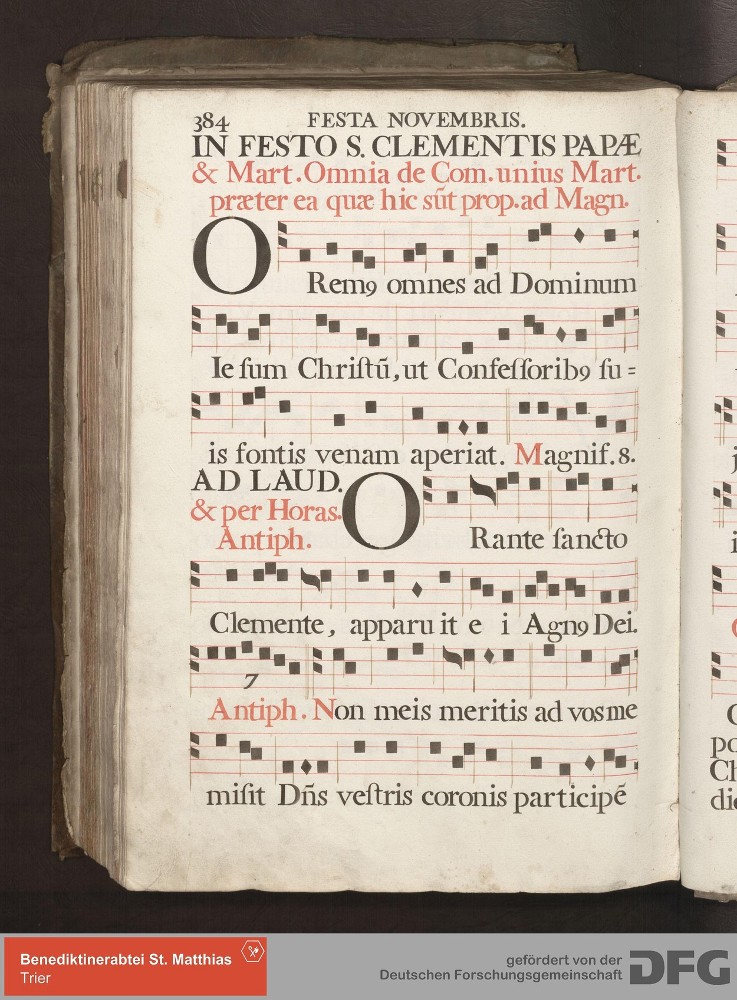 384 FESTA NOVEMBRIS.
IN FESTO S. CLEMENTIS PAPÆ
& Mart. Omnia de Com. unius Mart.
præter ea quæ hic sūt prop. ad Magn.
ORemꝰ omnes ad Dominum
Ieſum Chriſtū, ut Confeſſoribꝰ ſu=
is fontis venam aperiat. Magnif. 8.
AD LAUD.
& per Horas.
Antiph.
ORante ſancto
Clemente, apparuit ei Agnꝰ Dei.
7
Antiph. Non meis meritis ad vos me
miſit Dñs veſtris coronis participē
po
Ch
die
Benediktinerabtei St. Matthias
Trier
gefördert von der
Deutschen Forschungsgemeinschaft
DFG